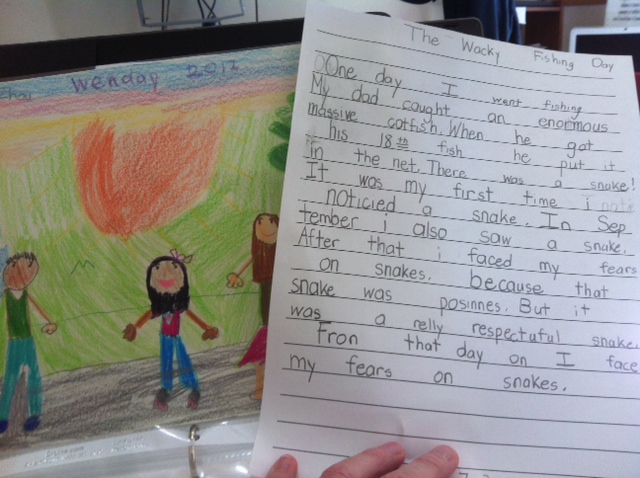 Wenday 2012
The Wacky Fishing Day
One day I went fishing
My dad caught an enormous
massive catfish. When he got
his 18th fish he put it
in the net. There was a snake!
It was my first time i
noticied a snake. In Sep
tember i also saw a snake.
After that i faced my fears
on snakes. because that
snake was posinnes. But it
was a relly respectuful snake.
Fron that day on I face
my fears on snakes.